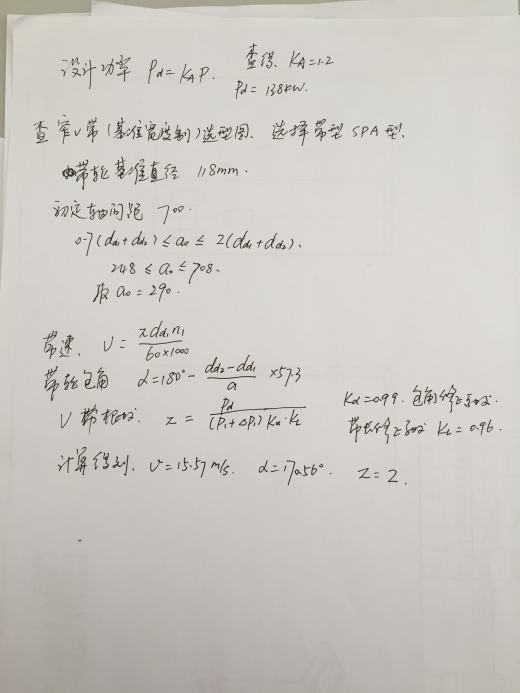 设计功率 Pd=KAP. 查得 KA=1.2
Pd= 13.8kW.
查窄V带(基准宽度制)选型图. 选择带型 SPA型.
带轮基准直径 118mm.
初定轴间距 700.
0.7(dd1+dd2)≤a0≤2(dd1+dd2).
248≤a0≤708.
取 a0=290.
带速. V= πdd1n1/60×1000
带轮包角 α=180°- dd2-dd1/a ×57.3
V带根数. z= Pd/(P1+ΔP1)Kα·KL
Kα=0.99. 包角修正系数.
带长修正系数 KL=0.96.
计算得到. V=15.57m/s. α=170.56°. z=2.